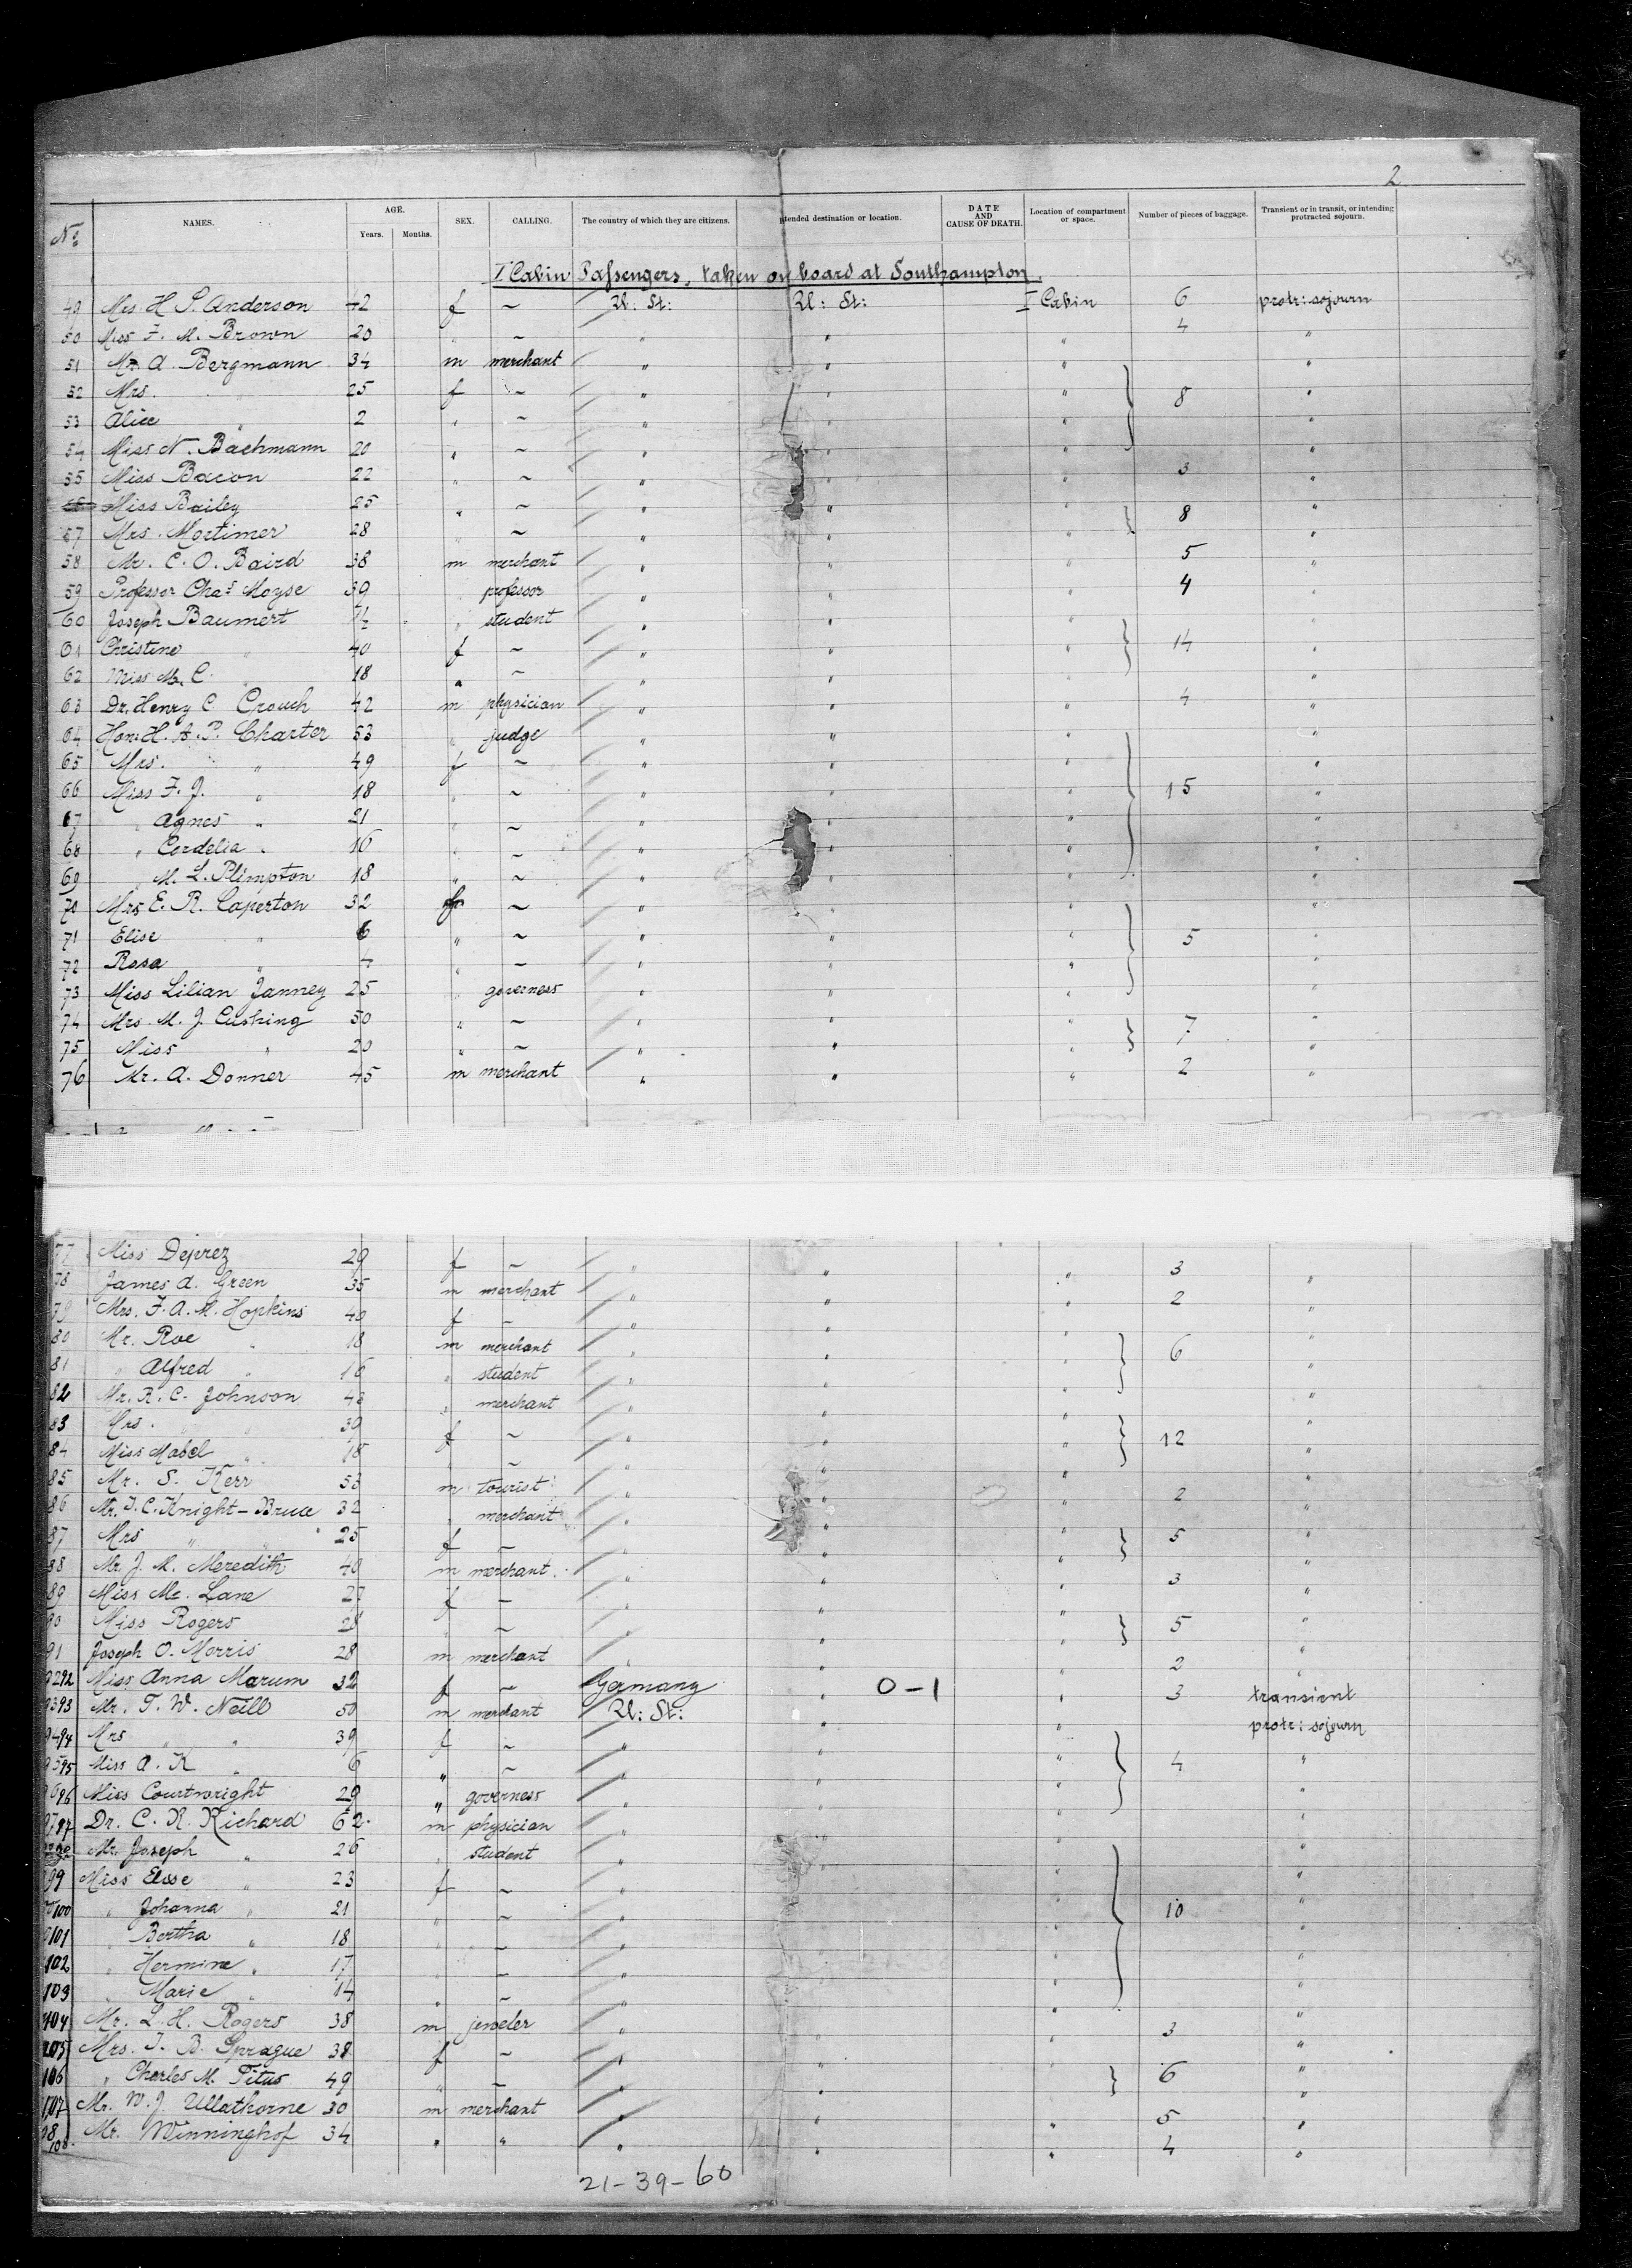 2
No NAMES. AGE. Years. Months. SEX. CALLING. The country of which they are citizens. ntended destination or location. DATE AND CAUSE OF DEATH. Location of compartment or space. Number of pieces of baggage. Transient or in transit, or intending protracted sojourn.
I Cabin Passengers, taken on board at Southampton.
49 Mrs. H. S. Anderson 42 f ~ U: St: U: St: I Cabin 6 protr: sojourn
50 Miss F. M. Brown 20 " ~ " " " 4 "
51 Mr. A. Bergmann 34 m merchant " " " "
52 Mrs. " 25 f ~ " " " 8 "
53 Alice " 2 " ~ " " " "
54 Miss N. Bachmann 20 " ~ " " " "
55 Miss Bacon 22 " ~ " " " 3 "
Miss Bailey 25 " ~ " " " "
57 Mrs. Mortimer 28 " ~ " " " 8 "
58 Mr. C. O. Baird 38 m merchant " " " 5 "
59 Professor Chas Moyse 39 " professor " " " 4 "
60 Joseph Baumert " student " " " "
61 Christine " 40 f ~ " " " 14 "
62 Miss M. C. " 18 " ~ " " " "
63 Dr. Henry C. Crouch 42 m physician " " " 4 "
64 Hon. H. A. P. Charter 53 " judge " " " "
65 Mrs. " 49 f ~ " " " "
66 Miss F. J. " 18 " ~ " " " 15 "
67 " Agnes " 21 " ~ " " " "
68 " Cordelia " 16 " ~ " " " "
69 M. L. Plimpton 18 " ~ " " " "
70 Mrs E. R. Caperton 32 f ~ " " " "
71 Elise " 6 " ~ " " " 5 "
72 Rosa " 4 " ~ " " " "
73 Miss Lilian Janney 25 " governess " " " "
74 Mrs. M. J. Cushing 50 " ~ " " " 7 "
75 Miss " 20 " ~ " " " "
76 Mr. A. Donner 45 m merchant " " " 2 "
77 Miss Deprez 29 f ~ " " " 3 "
78 James A. Green 35 m merchant " " " 2 "
79 Mrs. F. A. M. Hopkins 40 f ~ " " " "
80 Mr. Roe " 18 m merchant " " " 6 "
81 " Alfred " 16 " student " " " "
82 Mr. R. C. Johnson 43 " merchant " " " "
83 Mrs. " 39 f ~ " " " 12 "
84 Miss Mabel " 18 " ~ " " " "
85 Mr. S. Kerr 53 m tourist " " " 2 "
86 Mr. J. C. Knight-Bruce 32 " merchant " " " "
87 Mrs " " 25 f ~ " " " 5 "
88 Mr. J. M. Meredith 40 m merchant " " " 3 "
89 Miss Mc. Lane 27 f ~ " " " "
90 Miss Rogers 28 " ~ " " " 5 "
91 Joseph O. Morris 28 m merchant " " " 2 "
92 Miss Anna Marum 32 f ~ Germany " 0-1 " 3 transient
93 Mr. T. W. Neill 50 m merchant U: St: " " protr: sojourn
94 Mrs " " 39 f ~ " " " 4 "
95 Miss A. K " 6 " ~ " " " "
96 Miss Courtwright 29 " governess " " " "
97 Dr. C. R. Richard 62 m physician " " " "
Mr. Joseph " 26 " student " " " "
99 Miss Elsse " 23 f ~ " " " "
100 " Johanna " 21 " ~ " " " 10 "
101 " Bertha " 18 " ~ " " " "
102 " Hermine " 17 " ~ " " " "
103 " Marie " 14 " ~ " " " "
104 Mr. L. H. Rogers 38 m jeweler " " " 3 "
105 Mrs. J. B. Sprague 38 f ~ " " " "
106 " Charles M. Titus 49 " ~ " " " 6 "
107 Mr. W. J. Ullathorne 30 m merchant " " " 5 "
108 Mr. Winninghof 34 " " " " " 4 "
21-39-60